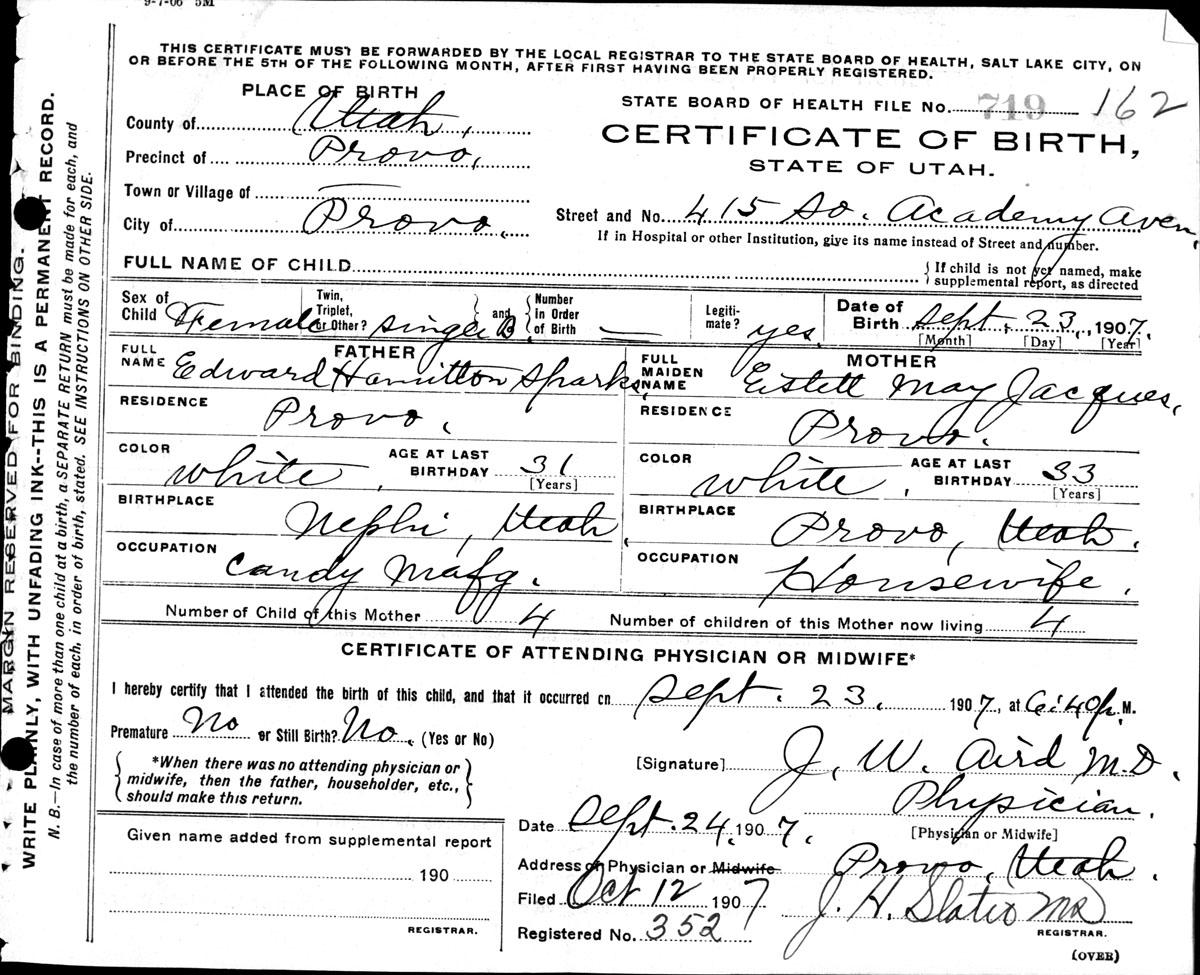 9-7-06 5M
THIS CERTIFICATE MUST BE FORWARDED BY THE LOCAL REGISTRAR TO THE STATE BOARD OF HEALTH, SALT LAKE CITY, ON
OR BEFORE THE 5TH OF THE FOLLOWING MONTH, AFTER FIRST HAVING BEEN PROPERLY REGISTERED.
PLACE OF BIRTH
County of Utah,
Precinct of Provo,
Town or Village of —
City of Provo.
STATE BOARD OF HEALTH FILE No. 719 162
CERTIFICATE OF BIRTH,
STATE OF UTAH.
Street and No. 415 So. Academy Aven.
If in Hospital or other Institution, give its name instead of Street and number.
FULL NAME OF CHILD
If child is not yet named, make
supplemental report, as directed
Sex of Child Female
Twin, Triplet, or Other? Single
and
Number in Order of Birth —
Legitimate? yes.
Date of Birth Sept. 23., 1907.
[Month] [Day] [Year]
FATHER
FULL NAME Edward Hamilton Sparks,
RESIDENCE Provo.
COLOR White,
AGE AT LAST BIRTHDAY 31
[Years]
BIRTHPLACE Nephi, Utah.
OCCUPATION Candy Mafg.
MOTHER
FULL MAIDEN NAME Estell May Jacques.
RESIDENCE Provo.
COLOR White,
AGE AT LAST BIRTHDAY 33
[Years]
BIRTHPLACE Provo, Utah.
OCCUPATION Housewife.
Number of Child of this Mother 4
Number of children of this Mother now living 4
CERTIFICATE OF ATTENDING PHYSICIAN OR MIDWIFE*
I hereby certify that I attended the birth of this child, and that it occurred on Sept. 23. 1907, at 6:40 p. M.
Premature No or Still Birth? No. (Yes or No)
*When there was no attending physician or
midwife, then the father, householder, etc.,
should make this return.
[Signature] J. W. Aird M.D.
Physician.
[Physician or Midwife]
Date Sept. 24. 1907.
Address of Physician or Midwife Provo, Utah.
Filed Oct 12 1907
J. H. Slater
REGISTRAR.
Registered No. 352
(OVER)
Given name added from supplemental report
190
REGISTRAR.
MARGIN RESERVED FOR BINDING.
WRITE PLAINLY, WITH UNFADING INK--THIS IS A PERMANENT RECORD.
N. B.—In case of more than one child at a birth, a SEPARATE RETURN must be made for each, and
the number of each, in order of birth, stated. SEE INSTRUCTIONS ON OTHER SIDE.